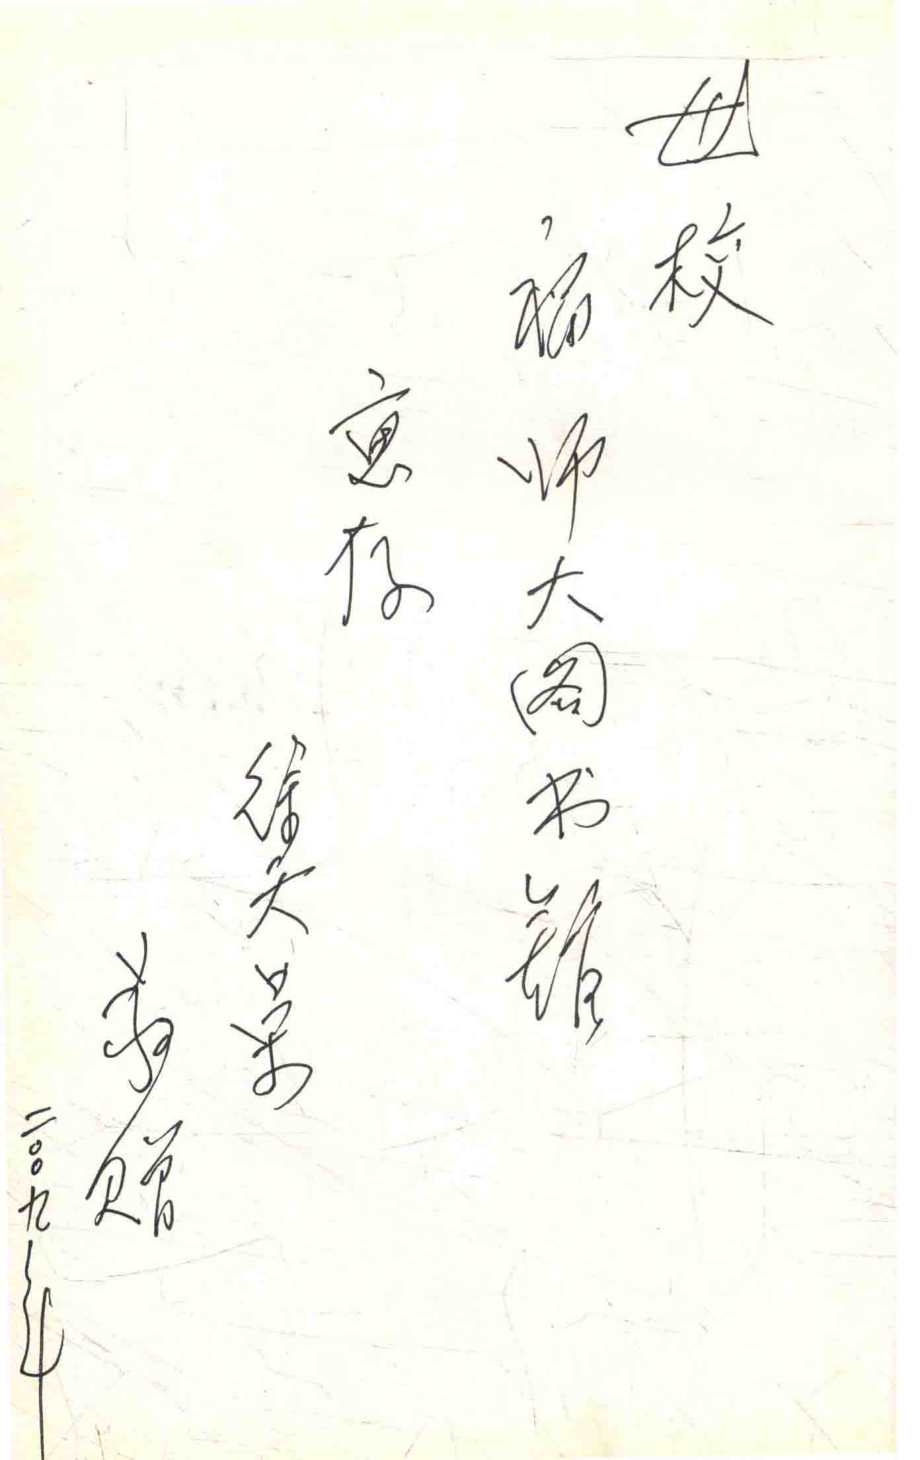 母校
福师大图书馆
惠存
徐天荣
敬赠
二〇〇九年